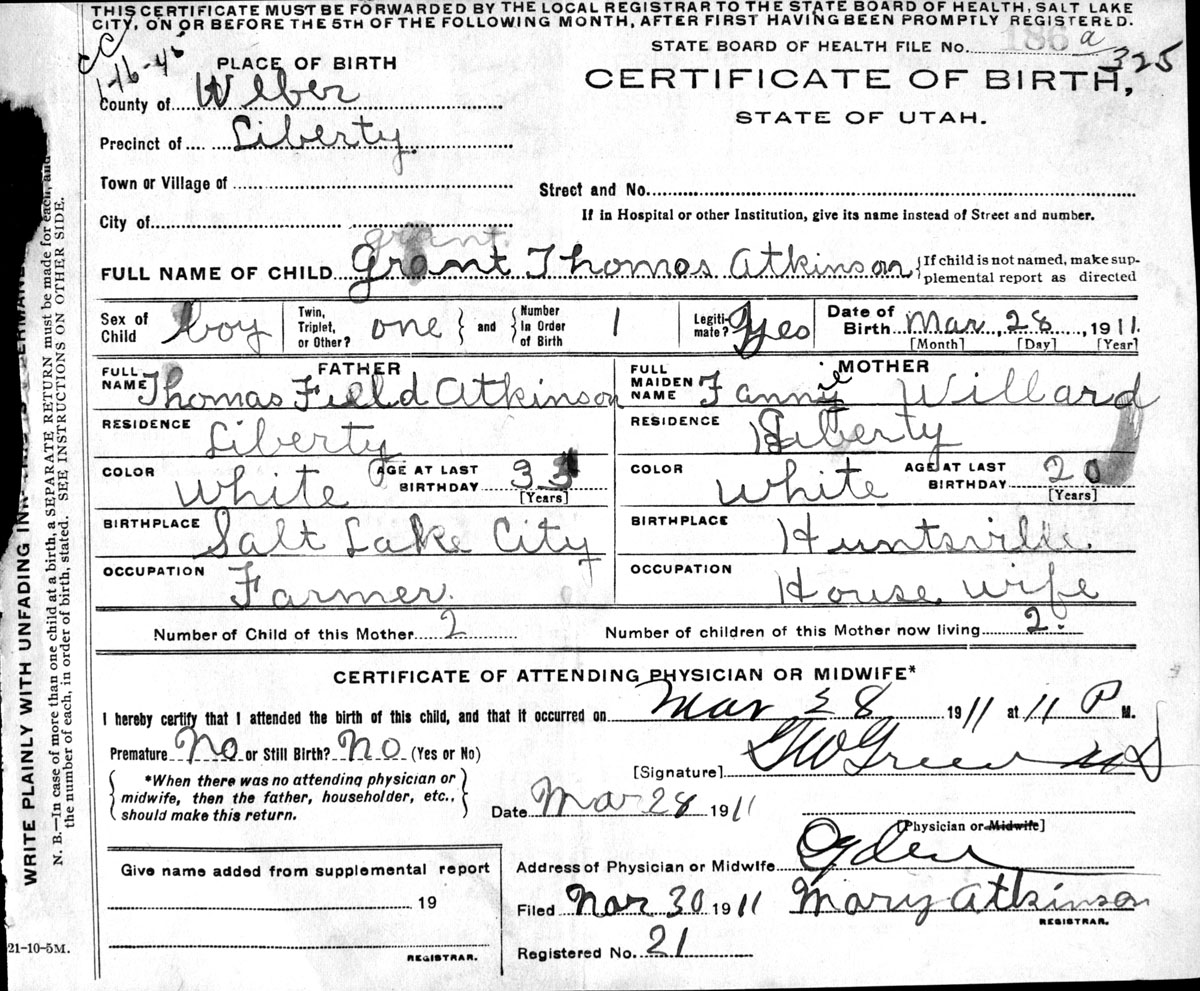 THIS CERTIFICATE MUST BE FORWARDED BY THE LOCAL REGISTRAR TO THE STATE BOARD OF HEALTH, SALT LAKE
CITY, ON OR BEFORE THE 5TH OF THE FOLLOWING MONTH, AFTER FIRST HAVING BEEN PROMPTLY REGISTERED.
STATE BOARD OF HEALTH FILE No. 186 a 325
1-16-4
PLACE OF BIRTH
CERTIFICATE OF BIRTH,
STATE OF UTAH.
County of Weber
Precinct of Liberty.
Town or Village of
Street and No.
City of
If in Hospital or other Institution, give its name instead of Street and number.
grant.
FULL NAME OF CHILD Grant Thomas Atkinson {If child is not named, make sup-
plemental report as directed
Sex of Child boy Twin, Triplet, or Other? one } and { Number In Order of Birth 1 Legiti-mate? Yes Date of Birth Mar, 28, 1911.
[Month] [Day] [Year]
FATHER MOTHER
FULL NAME Thomas Field Atkinson FULL MAIDEN NAME Fannie Willard
RESIDENCE Liberty RESIDENCE Liberty
COLOR White AGE AT LAST BIRTHDAY 33 [Years] COLOR White AGE AT LAST BIRTHDAY 20 [Years]
BIRTHPLACE Salt Lake City BIRTHPLACE Huntsville.
OCCUPATION Farmer. OCCUPATION House wife
Number of Child of this Mother 2 Number of children of this Mother now living 2.
CERTIFICATE OF ATTENDING PHYSICIAN OR MIDWIFE*
I hereby certify that I attended the birth of this child, and that it occurred on Mar 28 1911 at 11 P M.
Premature No or Still Birth? No (Yes or No)
[Signature]
*When there was no attending physician or
midwife, then the father, householder, etc.,
should make this return.
Date Mar 28 1911
[Physician or Midwife]
Address of Physician or Midwife Ogden
Give name added from supplemental report
19
REGISTRAR.
Filed Mar 30 1911 Mary Atkinson
REGISTRAR.
Registered No. 21
21-10-5M.
WRITE PLAINLY WITH UNFADING
N. B.—In case of more than one child at a birth, a SEPARATE RETURN must be made for each, and
the number of each, in order of birth, stated. SEE INSTRUCTIONS ON OTHER SIDE.